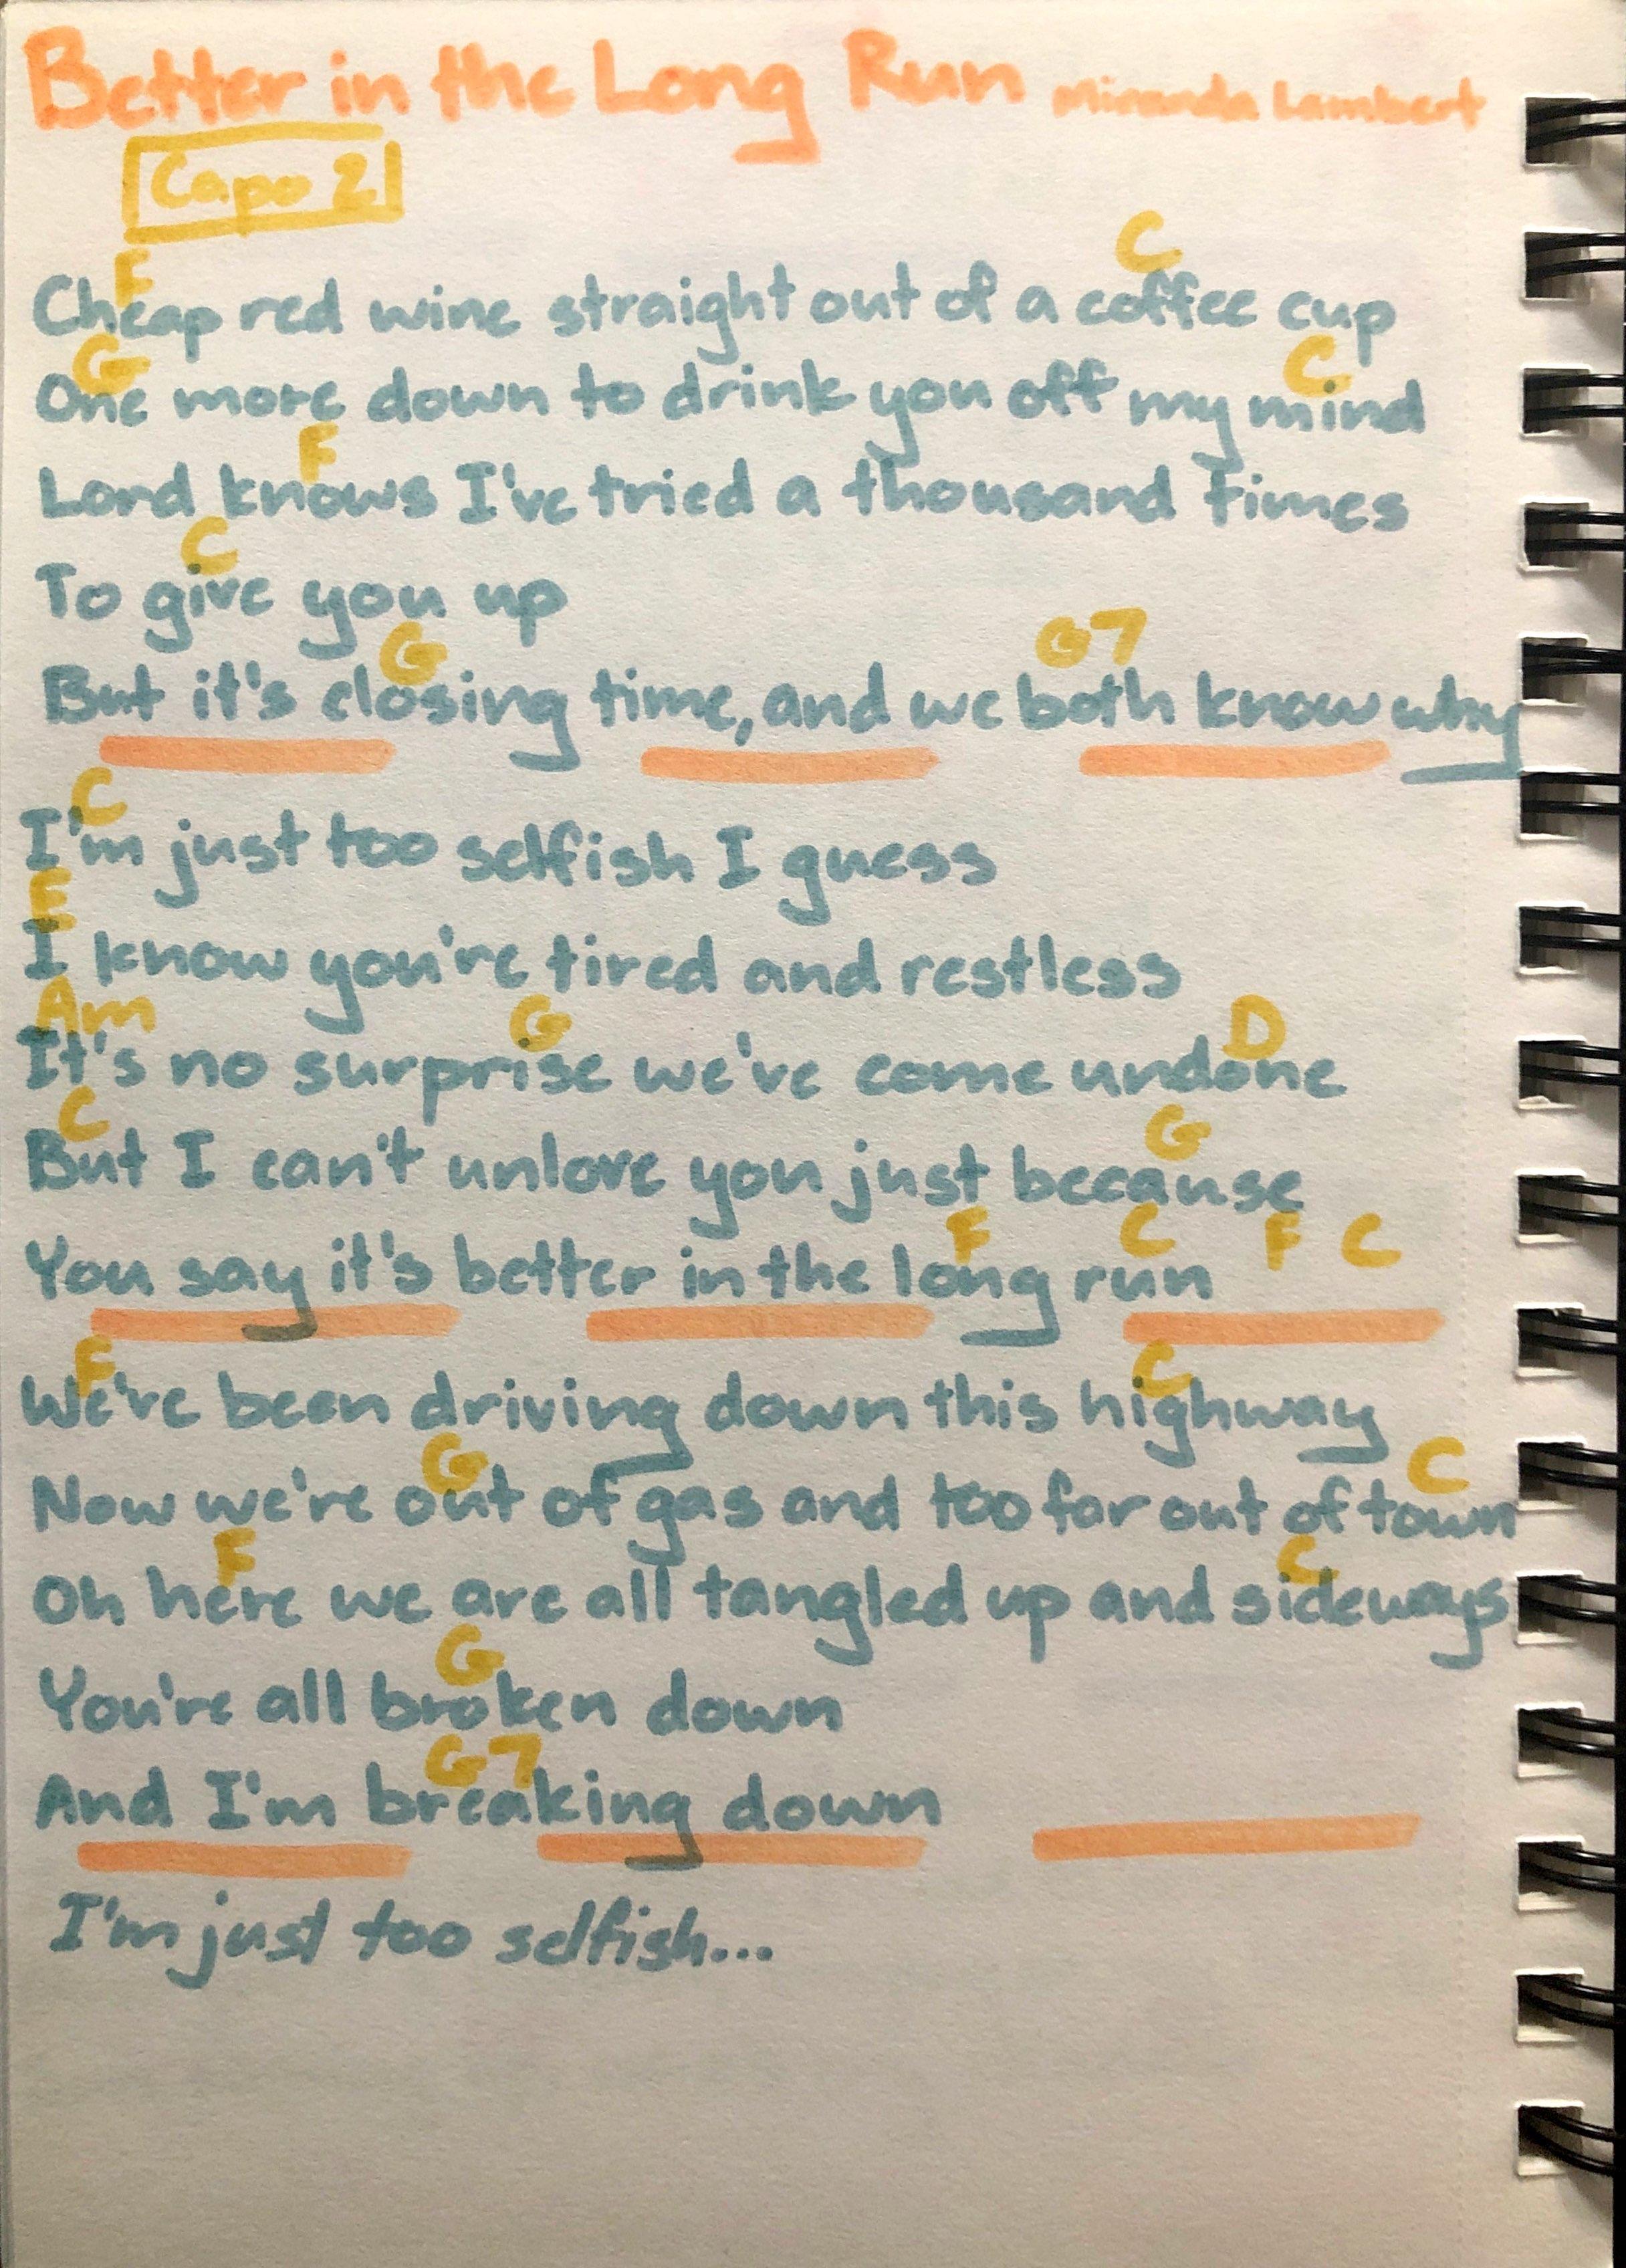 Better in the Long Run Miranda Lambert
Capo 2
F C
Cheap red wine straight out of a coffee cup
G C
One more down to drink you off my mind
F
Lord knows I've tried a thousand times
C
To give you up
G G7
But it's closing time, and we both know why
C
I'm just too selfish I guess
E
I know you're tired and restless
Am G D
It's no surprise we've come undone
C G
But I can't unlove you just because
F C F C
You say it's better in the long run
F C
We've been driving down this highway
G C
Now we're out of gas and too far out of town
F C
Oh here we are all tangled up and sideways
G
You're all broken down
G7
And I'm breaking down
I'm just too selfish...